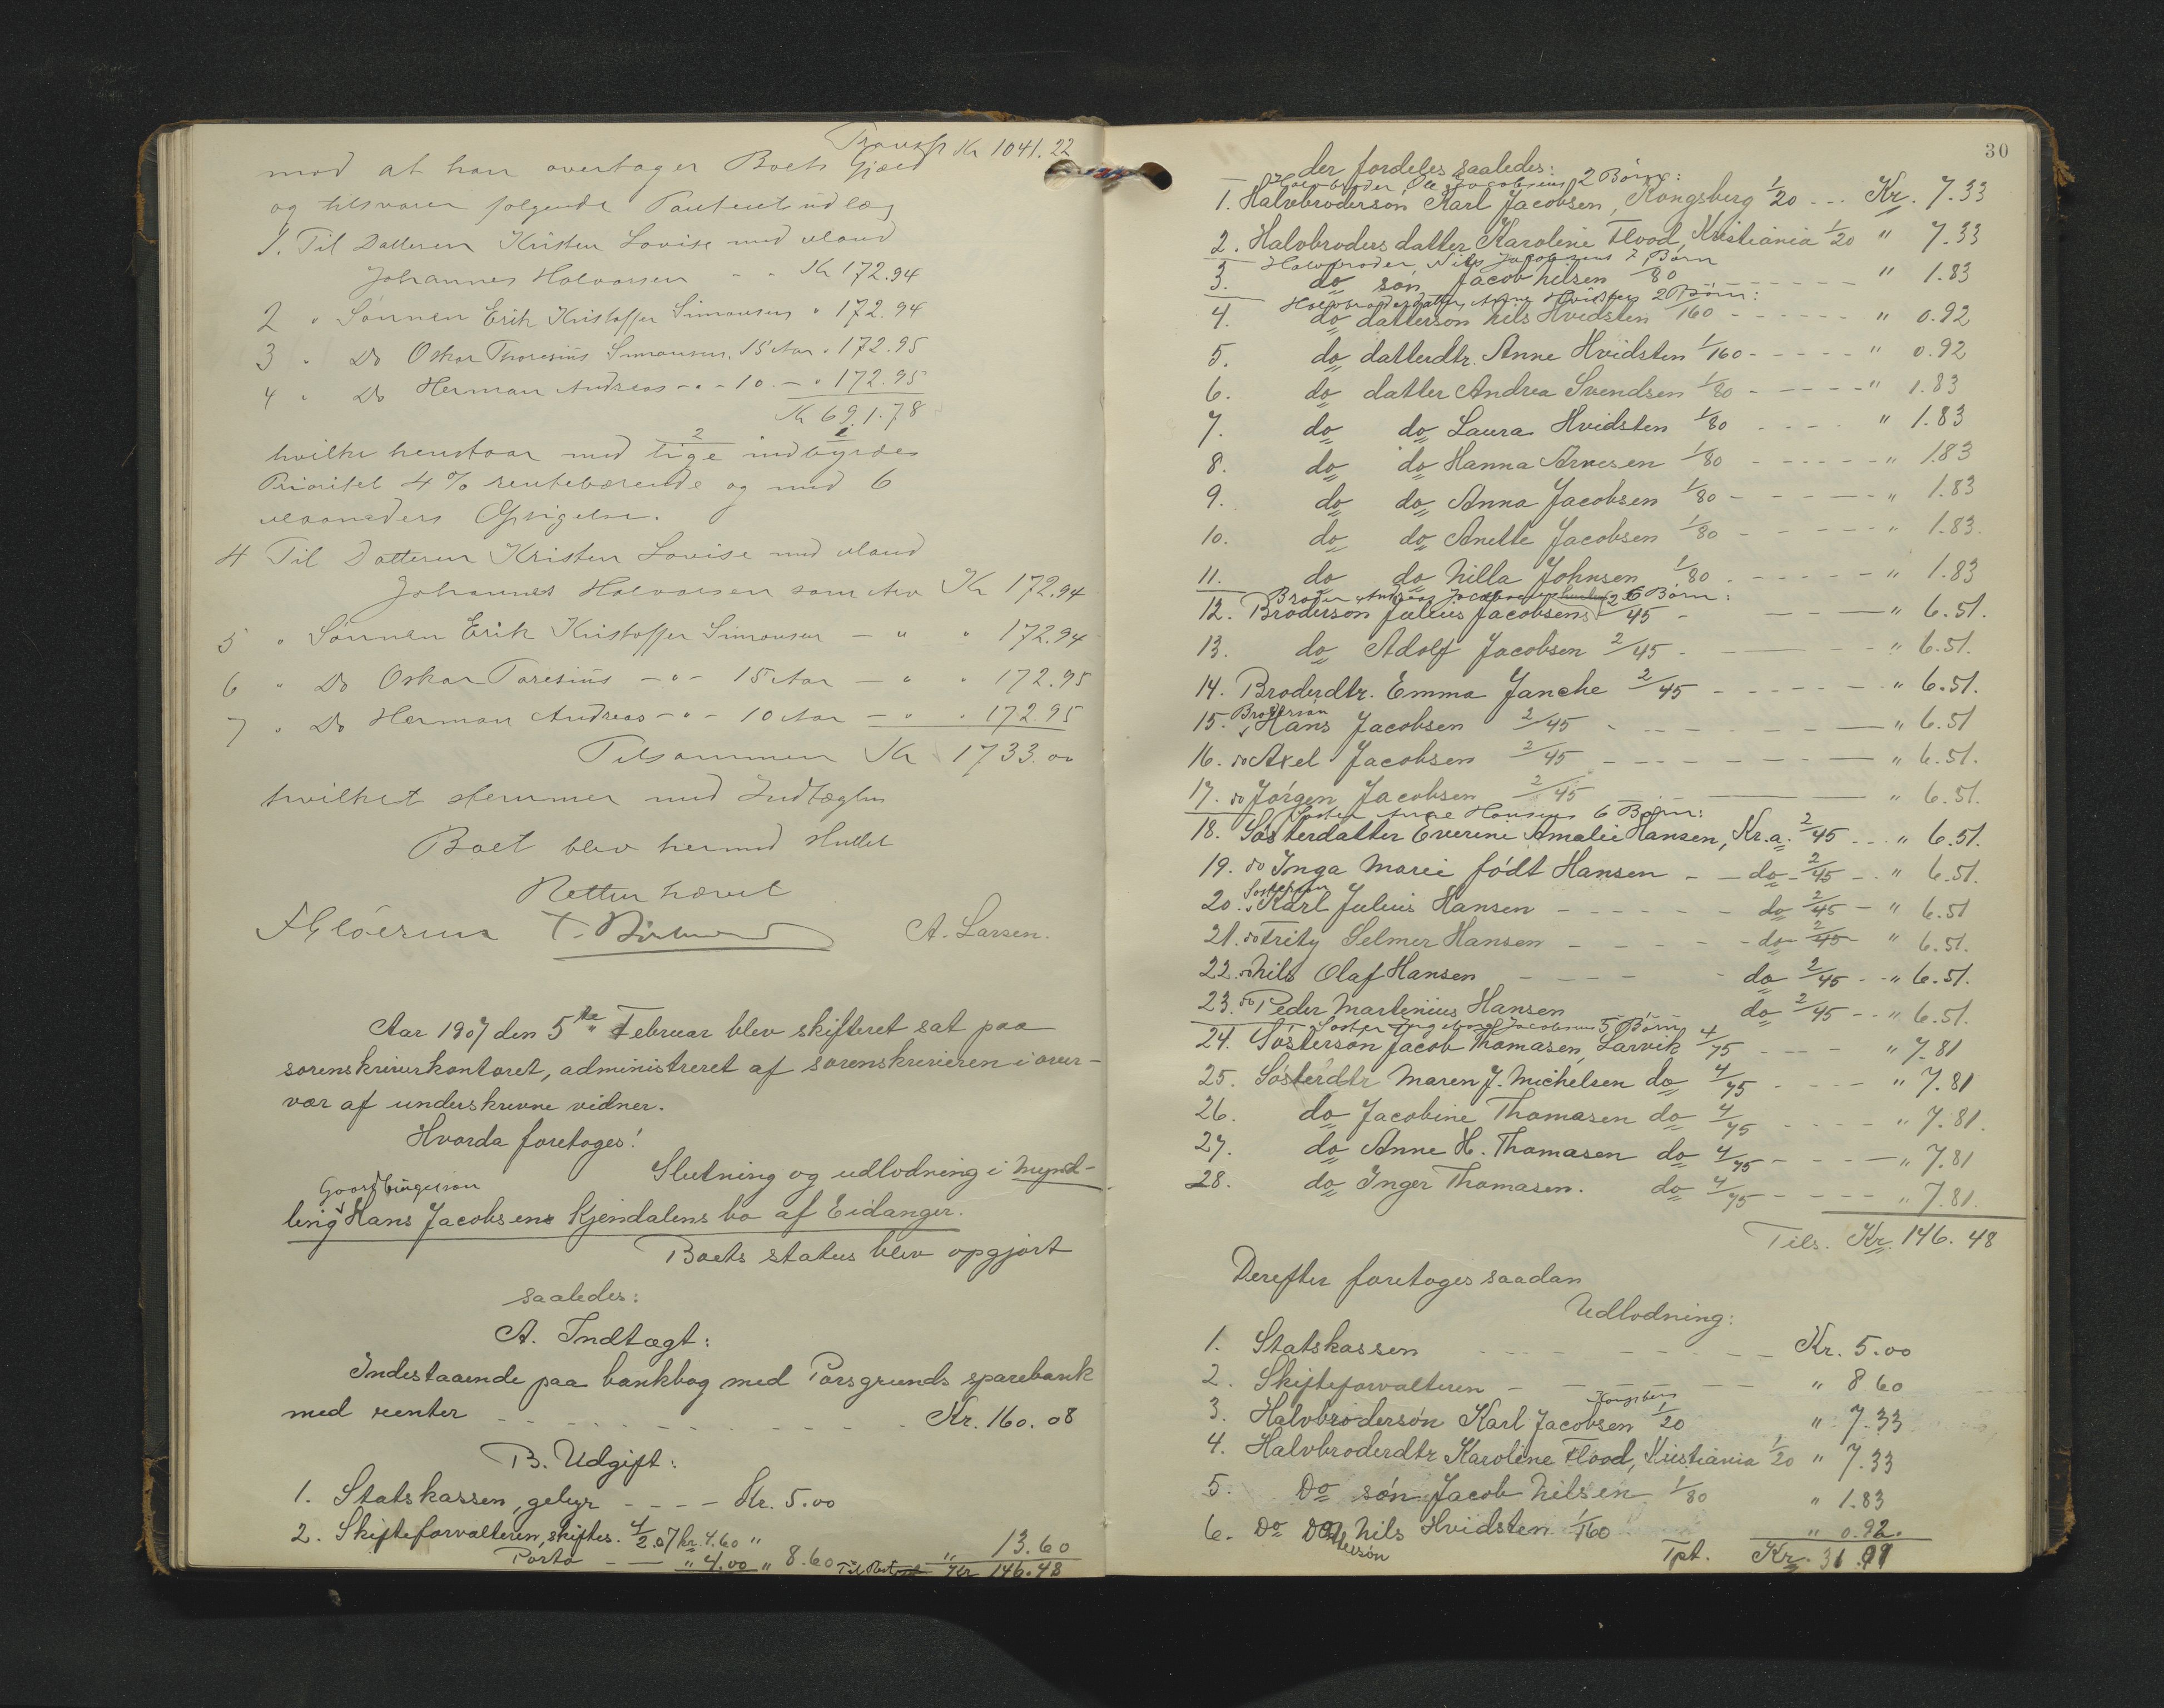 Transp Kr 1041.22
mod at han overtager Boets Gjæld
og tilsvarer følgende Panteretudlæg
1. Til Datteren Kristen Lovise med Mand
Johannes Halvorsen - - Kr 172.94
2 " Sønnen Erik Kristoffer Simonsen " 172.94
3 " Do Oskar Thoresius Simonsen, 15 Aar " 172.95
4 " Do Herman Andreas - " - 10 - " 172.95
Kr 691.78
2 1
hvilke henstaar med lige indbyrdes
Prioritet 4 % rentebærende og med 6
Maaneders Opsigelse.
4 Til Datteren Kristen Lovise med Mand
Johannes Halvorsen som Arv Kr 172.94
5 " Sønnen Erik Kristoffer Simonsen - " " 172.94
6 " Do Oskar Toresius - " - 15 Aar - " " 172.95
7 " Do Herman Andreas - " - 10 Aar - " " 172.95
Tilsammen Kr 1733.00
hvilket stemmer med Indtægten
Boet blev hermed sluttet
Retten hævet
A. Larsen.
Aar 1907 den 5te Februar blev skifteret sat paa
sorenskriverkontoret, administreret af sorenskriveren i over-
vær af underskrevne vidner.
Hvorda foretoges:
Slutning og udlodning i Mynd-
ling Hans Jacobsens Kjendalens bo af Eidanger.
Boets status blev opgjort
saaledes:
A. Indtægt:
Indestaaende paa bankbog med Porsgrunds sparebank
med renter - - - - - Kr. 160.08
B. Udgift:
1. Statskassen, gebyr - - - - Kr. 5.00
2. Skifteforvalteren, skiftes. 4/2.07 kr. 4.60 "
Porto - - " 4.00 " 8.60 " 13.60
Kr 146.48
30
der fordeles saaledes:
Halvbroder Ole Jacobsens 2 Børn:
1. Halvbrodersøn Karl Jacobsen, Kongsberg 1/20 ... Kr. 7.33
2. Halvbroders datter Karoline Flood, Kristiania 1/20 " 7.33
Halvbroder Nils Jacobsens 7 Børn
3. do søn Jacob Nilsen 1/80 - - - - " 1.83
2 Børn:
4. do dattersøn Nils Hvidsten 1/160 - - - - - " 0.92
5. do datterdtr. Anne Hvidsten 1/160 - - - - " 0.92
6. do datter Andrea Svendsen 1/80 - - - - " 1.83
7. do do Laura Hvidsten 1/80 - - - - " 1.83
8. do do Hanna Arnesen 1/80 - - - - " 1.83
9. do do Anna Jacobsen 1/80 - - - - " 1.83
10. do do Anette Jacobsen 1/80 - - - - " 1.83.
11. do do Nilla Johnsen 1/80 - - - - " 1.83
Broder Andreas Jacobsens 6 Børn:
12. Brodersøn Julius Jacobsens 2/45 - - - " 6.51.
13. do Adolf Jacobsen 2/45 - - - - " 6.51.
14. Broderdtr. Emma Janche 2/45 - - - - " 6.51.
15. Brodersøn Hans Jacobsen 2/45 - - - - " 6.51
16. do Axel Jacobsen 2/45 - - - - " 6.51.
17. do Jørgen Jacobsen 2/45 - - " 6.51.
Søster Anne Hansens 6 Børn:
18. Søsterdatter Everine Amalie Hansen, Kr.a. 2/45 - - " 6.51.
19. do Inga Marie født Hansen - - do - 2/45 - " 6.51.
20. Søstersøn Karl Julius Hansen - - - - do 2/45 - " 6.51
21. do Fritz Selmer Hansen - - - - do 2/45 " 6.51.
22. do Nils Olaf Hansen - - - do 2/45 - " 6.51.
23. do Peder Martinius Hansen do 2/45 - - " 6.51.
Søster Ingeborg Jacobsens 5 Børn
24. Søstersøn Jacob Thomasen, Larvik 4/75 - - - " 7.81
25. Søsterdtr Maren J. Michelsen do 4/75 - - - " 7.81
26. do Jacobine Thomasen do 4/75 - - - " 7.81.
27. do Anne H. Thomasen do 4/75 - - - " 7.81
28. do Inger Thomasen. do 4/75 - - - " 7.81.
Tils. Kr. 146.48
Derefter foretoges saadan
Udlodning:
1. Statskassen - - - - Kr. 5.00
2. Skifteforvalteren - - - - " 8 60
3. Halvbrodersøn Karl Jacobsen Kongsberg 1/20 " 7.33
4. Halvbroderdtr Karoline Flood, Kristiania 1/20 " 7.33
5. Do søn Jacob Nilsen 1/80 " 1.83
6. Do Dattersøn Nils Hvidsten 1/160 " 0.92.
Tpt. Kr. 31.01